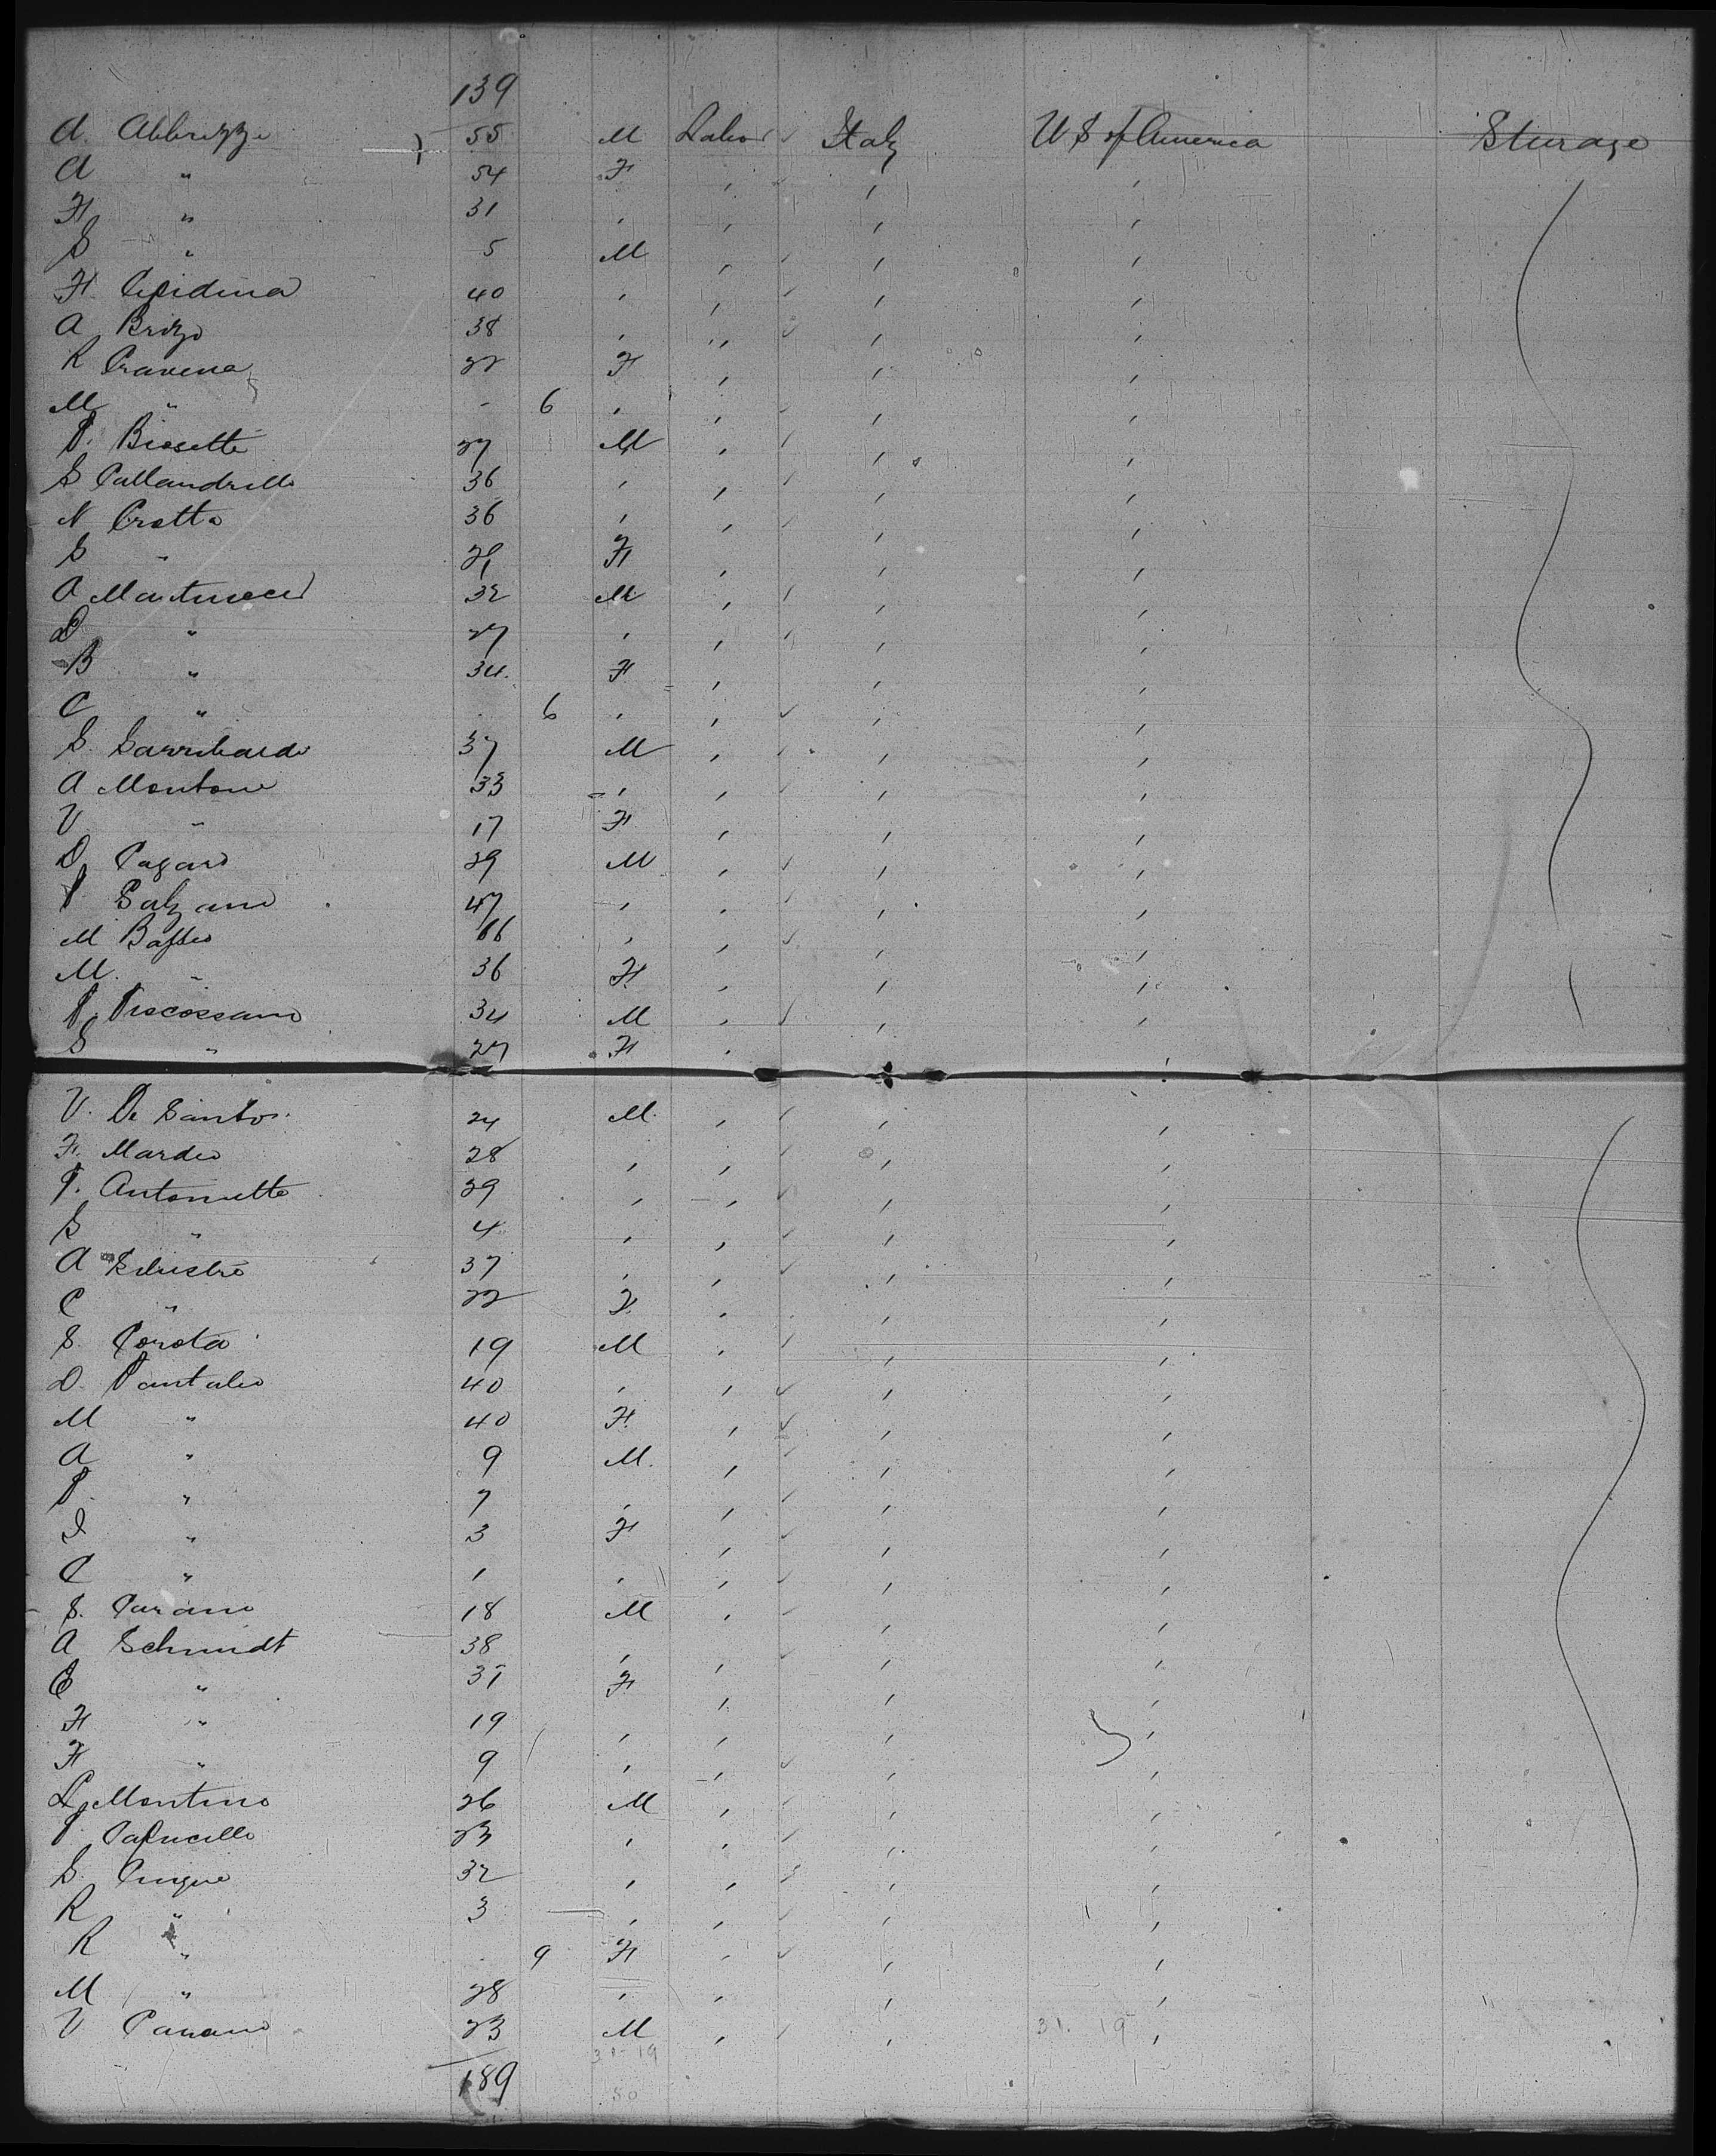 139
A. Abbrizze 55 M Labor ✓ Italy U S of America Steerage
A " 54 F , ✓ , ,
F " 31 , , , ,
S " 5 M , ✓ , ,
F. 40 , , ✓ , ,
A Brizo 38 , ,, ✓ , ,
R Cravena 22 F , , ,
M " - 6 , , ✓ , ,
P. Bissette 27 M , ✓ , ,
S Callandrillo 36 , , ✓ , ,
N Crotta 36 , , ✓ , ,
S " F , , ,
A Martucced 32 M , ✓ , ,
D " 27 , , ✓ , ,
B " 34. F , , ,
C " 6 , , ✓ , ,
S. Sarribardo 37 M , ✓ , ,
A Montone 33 , , ✓ , ,
V " 17 F , , ,
D. Pagano 29 M , ✓ , ,
P Salzano 47 , , ✓ , ,
M Basseo , , ✓ , ,
M. " 36 F , , ,
P. Piscossano 34 M , ✓ , ,
S " 27 F , ,
V. De Santos 24 M. , ✓ , ,
F. Mardeo 28 , , ✓ , ,
P. Antonietto 29 , , ✓ , ,
S " 4 , , ✓ , ,
A Silvestre 37 , , ✓ , ,
C " 22 F. , , ,
S. Corota 19 M , ✓ , ,
D. Pantaleo 40 , , ✓ , ,
M " 40 F. , ✓ , ,
A " 9 M. , ✓ , ,
P. " 7 , , ✓ , ,
I " 3 F , ✓ , ,
C " 1 , , ✓ , ,
S. Parano 18 M , ✓ , ,
A Schmidt 38 , , ✓ , ,
E " 37 F , , ,
F " 19 , , , ,
F " 9 , , ✓ , ,
L. Montino 26 M , ✓ , ,
P Pasucello 23 , , ✓ , ,
S. Cinque 32 , , ✓ , ,
R " 3 , , ✓ , ,
R " 9 F , ✓ , ,
M " 28 , , , ,
V Panano 23 M , ✓ , 31. 19 ,
31-19
189 50